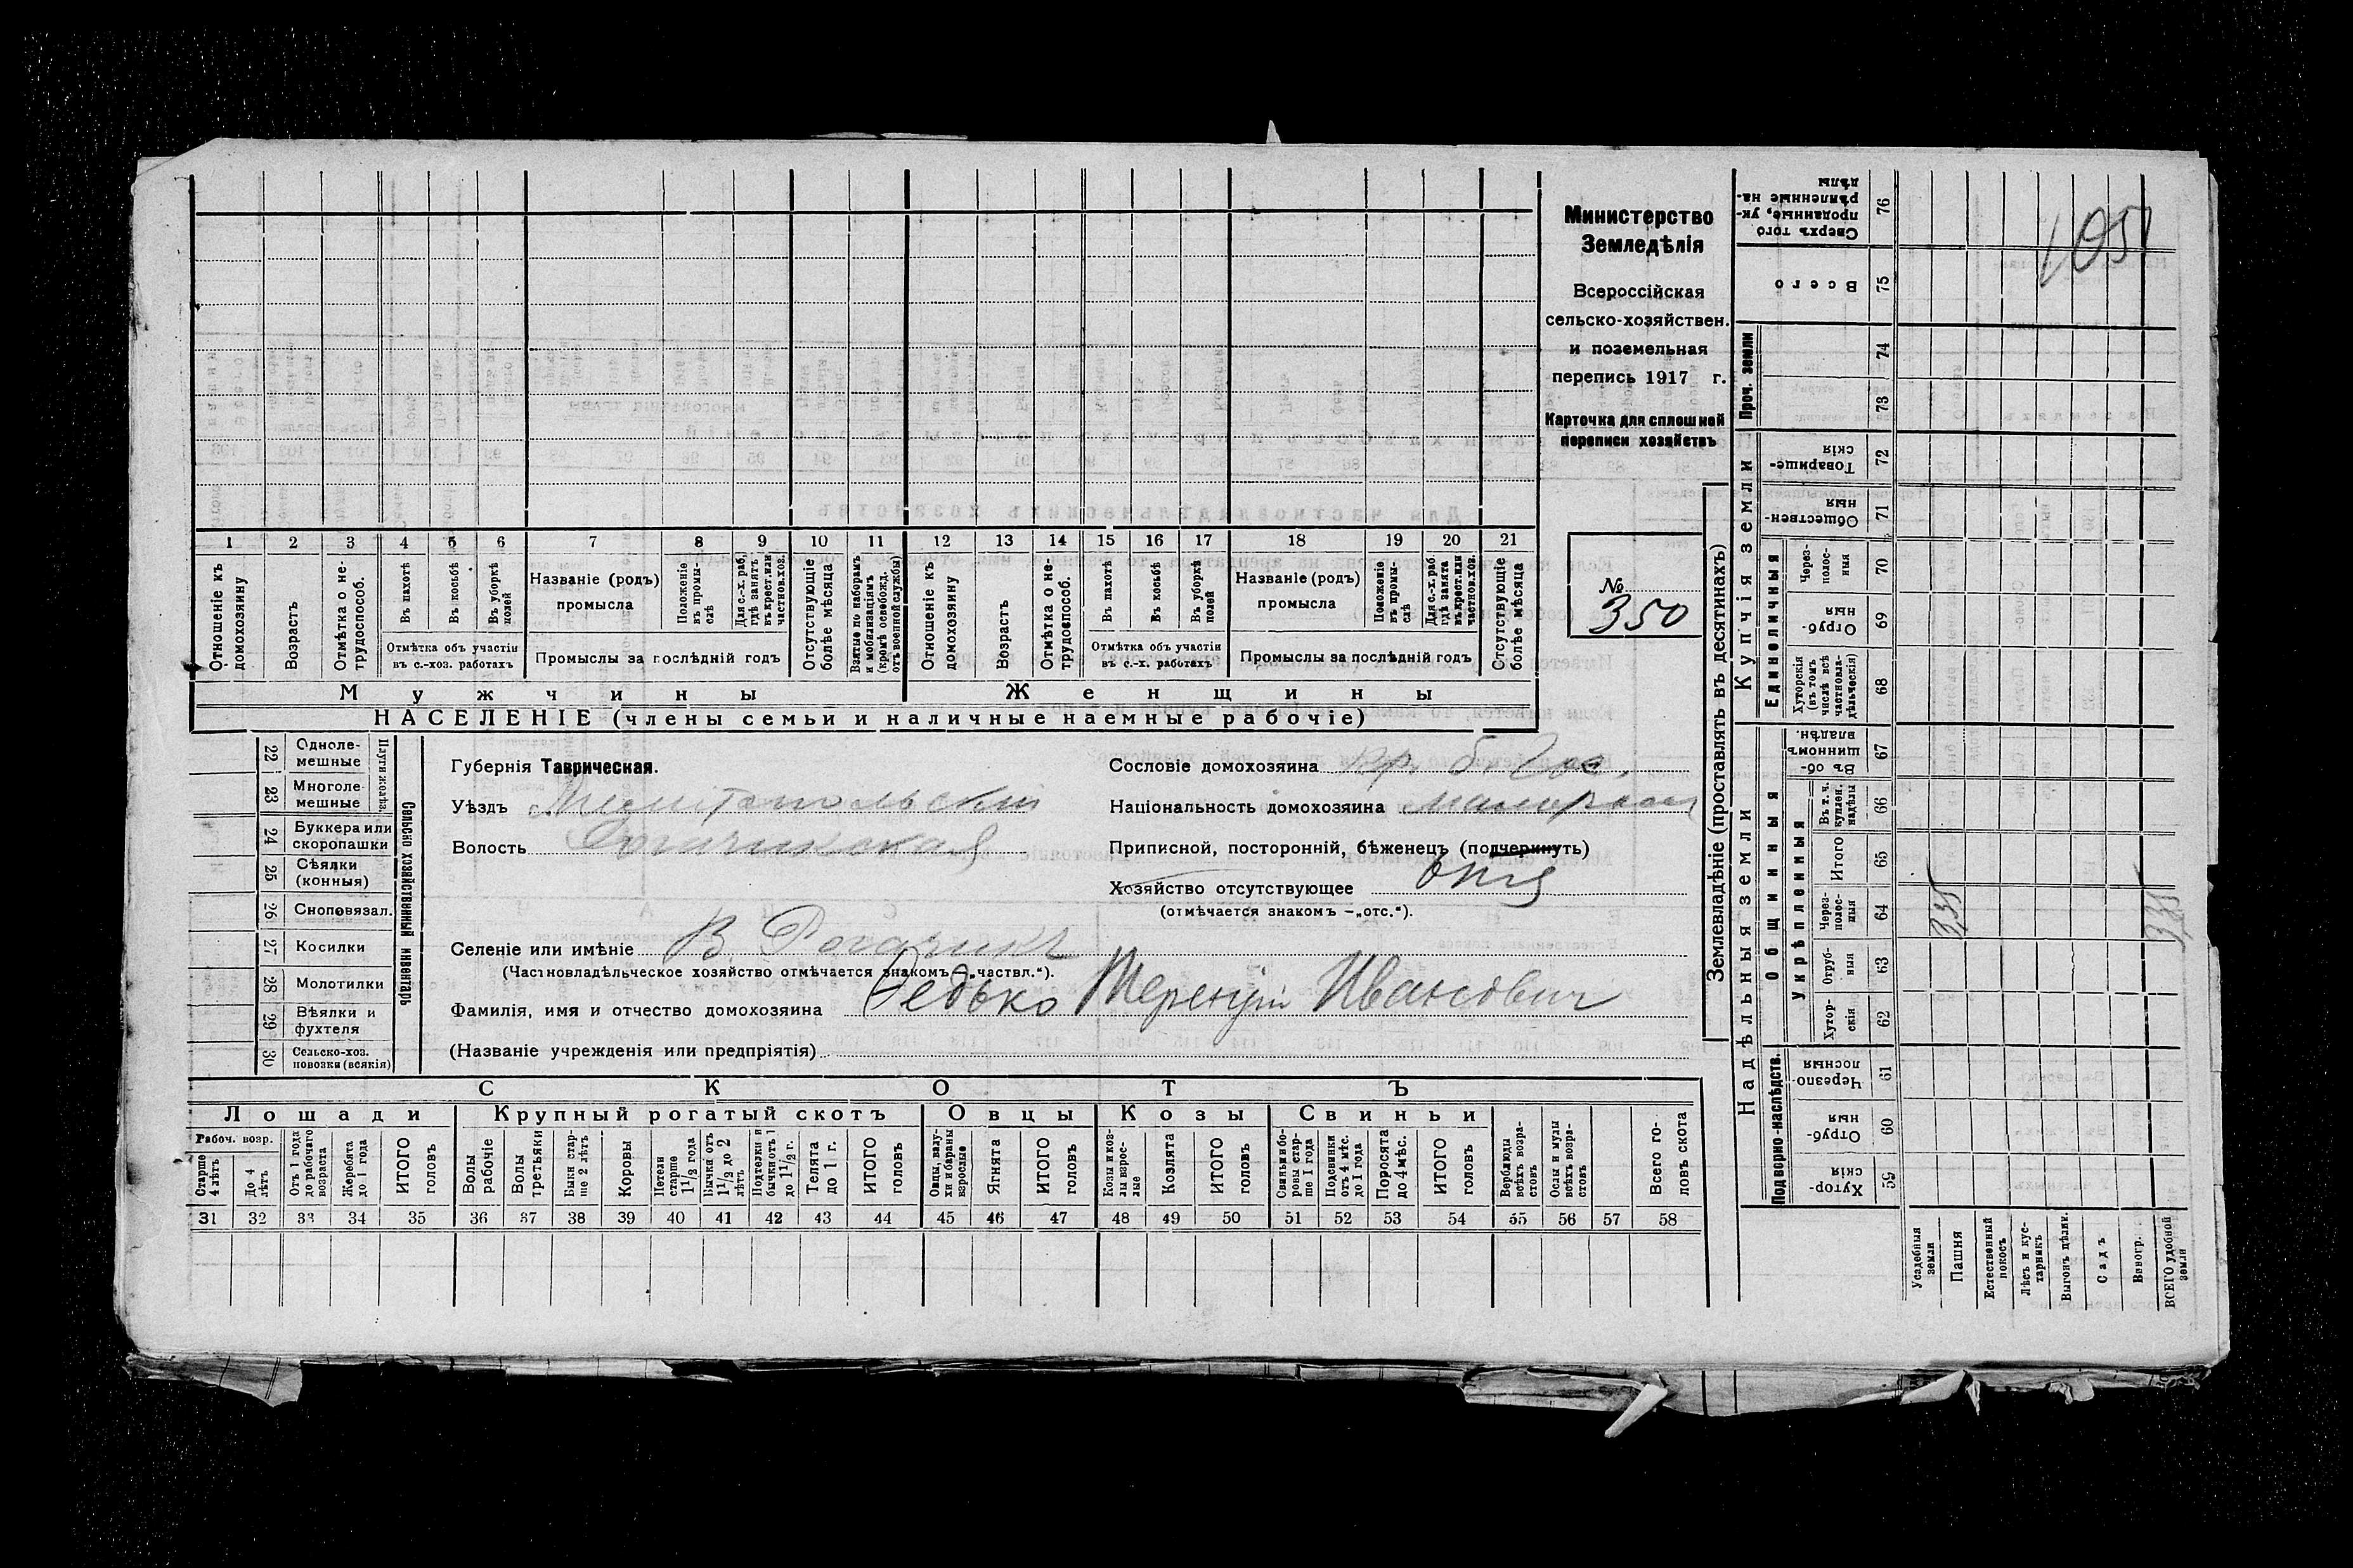 Министерство
Земледѣлія
Всероссійская
сельско-хозяйствен.
и поземельная
перепись 1917 г.
Карточка для сплошной
переписи хозяйствъ
№
350
1 2 3 4 5 6 7 8 9 10 11 12 13 14 15 16 17 18 19 20 21
Отношеніе къ домохозяину
Возрастъ
Отмѣтка о не-трудоспособ.
Въ пахотѣ
Въ косьбѣ
Въ уборкѣ полей
Отмѣтка объ участіи
въ с.-хоз. работахъ
Названіе (родъ)
промысла
Положеніе въ промы-слѣ
Для с.-х. раб. гдѣ занятъ въ крест. или частнов. хоз.
Промыслы за послѣдній годъ
Отсутствующіе болѣе мѣсяца
Взятые по наборамъ и мобилизаціямъ (кромѣ освобожд. отъ военной службы)
Отношеніе къ домохозяину
Возрастъ
Отмѣтка о не-трудоспособ.
Въ пахотѣ
Въ косьбѣ
Въ уборкѣ полей
Отмѣтка объ участіи
въ с.-х. работахъ
Названіе (родъ)
промысла
Положеніе въ промы-слѣ
Для с.-х. раб. гдѣ занята въ крест. или частнов. хоз.
Промыслы за послѣдній годъ
Отсутствующіе болѣе мѣсяца
Мужчины Женщины
НАСЕЛЕНІЕ (члены семьи и наличные наемные рабочіе)
22 Одноле-мешные
23 Многоле-мешные
Плуги желѣз.
24 Буккера или скоропашки
25 Сѣялки (конныя)
26 Сноповязал.
27 Косилки
28 Молотилки
29 Вѣялки и фухтеля
30 Сельско-хоз. повозки (всякія)
Сельско хозяйственный инвентарь
Губернія Таврическая.
Уѣздъ Мелитопольскій
Волость Рогачикская
Сословіе домохозяина кр. б. Гос.
Національность домохозяина малоросс
Приписной, посторонній, бѣженецъ (подчеркнуть)
Хозяйство отсутствующее отс
(отмѣчается знакомъ —„отс.“).
Селеніе или имѣніе В. Рогачикъ
(Частновладѣльческое хозяйство отмѣчается знакомъ —„частвл.“).
Фамилія, имя и отчество домохозяина Редько Терентій Ивановичъ
(Названіе учрежденія или предпріятія)
СКОТЪ
Лошади Крупный рогатый скотъ Овцы Козы Свиньи
Рабоч. возр.
Старше 4 лѣтъ
До 4 лѣтъ
Отъ 1 года до рабочаго возраста
Жеребята до 1 года
ИТОГО головъ
Волы рабочіе
Волы третьяки
Быки стар-ше 2 лѣтъ
Коровы
Нетели старше 1½ года
Бычки отъ 1½ до 2 лѣтъ
Подтелки и бычки отъ 1 до 1½ г.
Телята до 1 г.
ИТОГО головъ
Овцы, валу-хи и бараны взрослые
Ягнята
ИТОГО головъ
Козы и коз-лы взрос-лые
Козлята
ИТОГО головъ
Свиньи и бо-ровы стар-ше 1 года
Подсвинки отъ 4 мѣс. до 1 года
Поросята до 4 мѣс.
ИТОГО головъ
Верблюды всѣхъ возра-стовъ
Ослы и мулы всѣхъ возра-стовъ
Всего го-ловъ скота
31 32 33 34 35 36 37 38 39 40 41 42 43 44 45 46 47 48 49 50 51 52 53 54 55 56 57 58
Землевладѣніе (проставлять въ десятинахъ)
Надѣльныя земли
Купчія земли
Проч. земли
Подворно-наслѣдств.
Общинныя
Укрѣпленныя
Единоличныя
Сверхъ того проданные, ук-рѣпленные на-дѣлы 76
Всего 75
74
73
Товарище-скія 72
Обществен-ныя 71
Через-полос-ныя 70
Отруб-ныя 69
Хуторскія (въ томъ числѣ всѣ частновла-дѣльческія) 68
Въ об-щинномъ владѣн. 67
Въ т. ч. куплен. надѣлы 66
Итого 65
Через-полос-ныя 64
Отруб-ныя 63
Хутор-скія 62
Черезпо-лосныя 61
Отруб-ныя 60
Хутор-скія 59
Усадебныя земли
Пашня
Естественный покосъ
Лѣсъ и кус-тарникъ
Выгонъ дѣлим.
Садъ
Виногр.
ВСЕГО удобной земли
1051